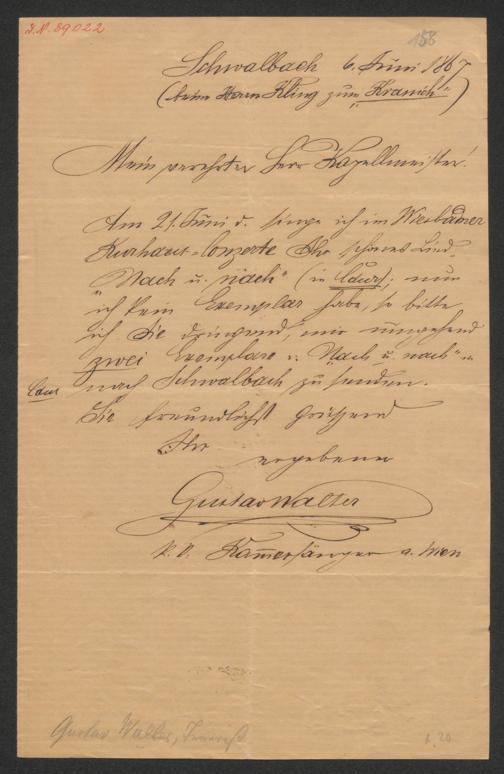 I.N. 89022
158
Schwalbach 6. Juni 1867
(beim Herrn Kling zum „Kranich“)
Mein verehrter Herr Kapellmeister!
Am 21. Juni d. singe ich im Wiesbadner
Kurhaus-Conzerte Ihr schönes Lied,
„Nach u. nach“ (in Cdur); nun
ich kein Exemplar habe, so bitte
ich Sie dringend, mir umgehend
zwei Exemplare v. „Nach u. nach“ in
Cdur nach Schwalbach zu senden.
Sie freundlichst grüssend
Ihr
ergebener
Gustav Walter
k. k. Kammersänger a. Wien
Gustav Walter, Tenorist